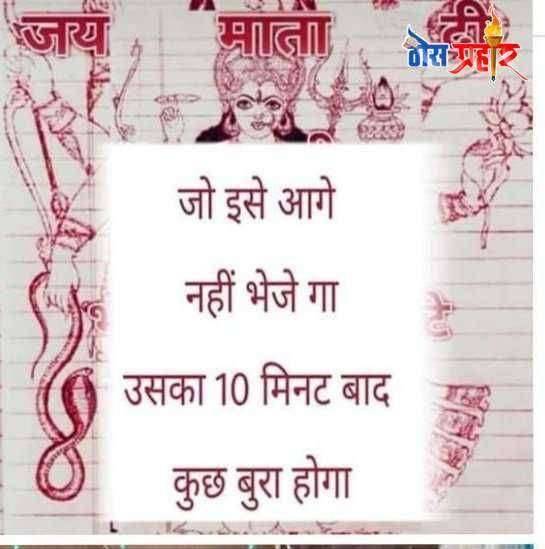 जय माता दी
ठोस प्रहार
जो इसे आगे
नहीं भेजे गा
उसका 10 मिनट बाद
कुछ बुरा होगा